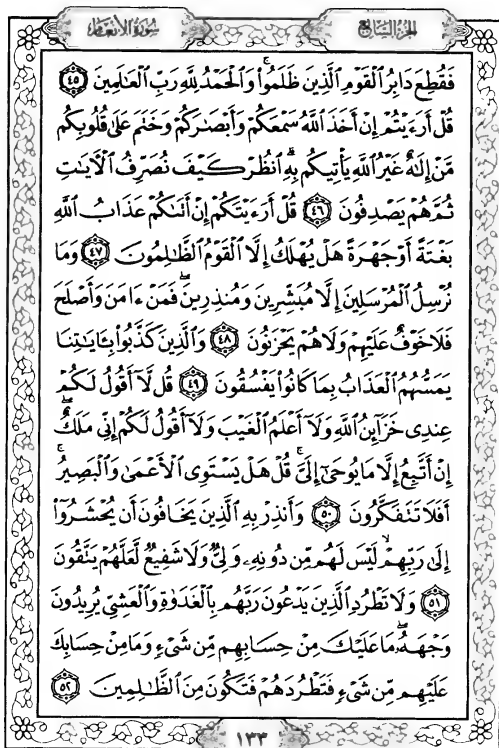 سورة الأنعام
الجزء السابع
فَقُطِعَ دَابِرُ الْقَوْمِ الَّذِينَ ظَلَمُوا۟ ۚ وَالْحَمْدُ لِلَّهِ رَبِّ الْعَالَمِينَ ﴿٤٥﴾
قُلْ أَرَءَيْتُمْ إِنْ أَخَذَ اللَّهُ سَمْعَكُمْ وَأَبْصَارَكُمْ وَخَتَمَ عَلَىٰ قُلُوبِكُم
مَّنْ إِلَٰهٌ غَيْرُ اللَّهِ يَأْتِيكُم بِهِ ۗ انظُرْ كَيْفَ نُصَرِّفُ الْآيَاتِ
ثُمَّ هُمْ يَصْدِفُونَ ﴿٤٦﴾ قُلْ أَرَءَيْتَكُمْ إِنْ أَتَاكُمْ عَذَابُ اللَّهِ
بَغْتَةً أَوْ جَهْرَةً هَلْ يُهْلَكُ إِلَّا الْقَوْمُ الظَّالِمُونَ ﴿٤٧﴾ وَمَا
نُرْسِلُ الْمُرْسَلِينَ إِلَّا مُبَشِّرِينَ وَمُنذِرِينَ ۖ فَمَنْ ءَامَنَ وَأَصْلَحَ
فَلَا خَوْفٌ عَلَيْهِمْ وَلَا هُمْ يَحْزَنُونَ ﴿٤٨﴾ وَالَّذِينَ كَذَّبُوا۟ بِـَٔايَاتِنَا
يَمَسُّهُمُ الْعَذَابُ بِمَا كَانُوا۟ يَفْسُقُونَ ﴿٤٩﴾ قُل لَّا أَقُولُ لَكُمْ
عِندِى خَزَآئِنُ اللَّهِ وَلَا أَعْلَمُ الْغَيْبَ وَلَا أَقُولُ لَكُمْ إِنِّى مَلَكٌ ۖ
إِنْ أَتَّبِعُ إِلَّا مَا يُوحَىٰ إِلَىَّ ۚ قُلْ هَلْ يَسْتَوِى الْأَعْمَىٰ وَالْبَصِيرُ ۚ
أَفَلَا تَتَفَكَّرُونَ ﴿٥٠﴾ وَأَنذِرْ بِهِ الَّذِينَ يَخَافُونَ أَن يُحْشَرُوٓا۟
إِلَىٰ رَبِّهِمْ ۙ لَيْسَ لَهُم مِّن دُونِهِۦ وَلِىٌّ وَلَا شَفِيعٌ لَّعَلَّهُمْ يَتَّقُونَ
﴿٥١﴾ وَلَا تَطْرُدِ الَّذِينَ يَدْعُونَ رَبَّهُم بِالْغَدَوٰةِ وَالْعَشِىِّ يُرِيدُونَ
وَجْهَهُۥ ۖ مَا عَلَيْكَ مِنْ حِسَابِهِم مِّن شَىْءٍ وَمَا مِنْ حِسَابِكَ
عَلَيْهِم مِّن شَىْءٍ فَتَطْرُدَهُمْ فَتَكُونَ مِنَ الظَّالِمِينَ ﴿٥٢﴾
١٣٣